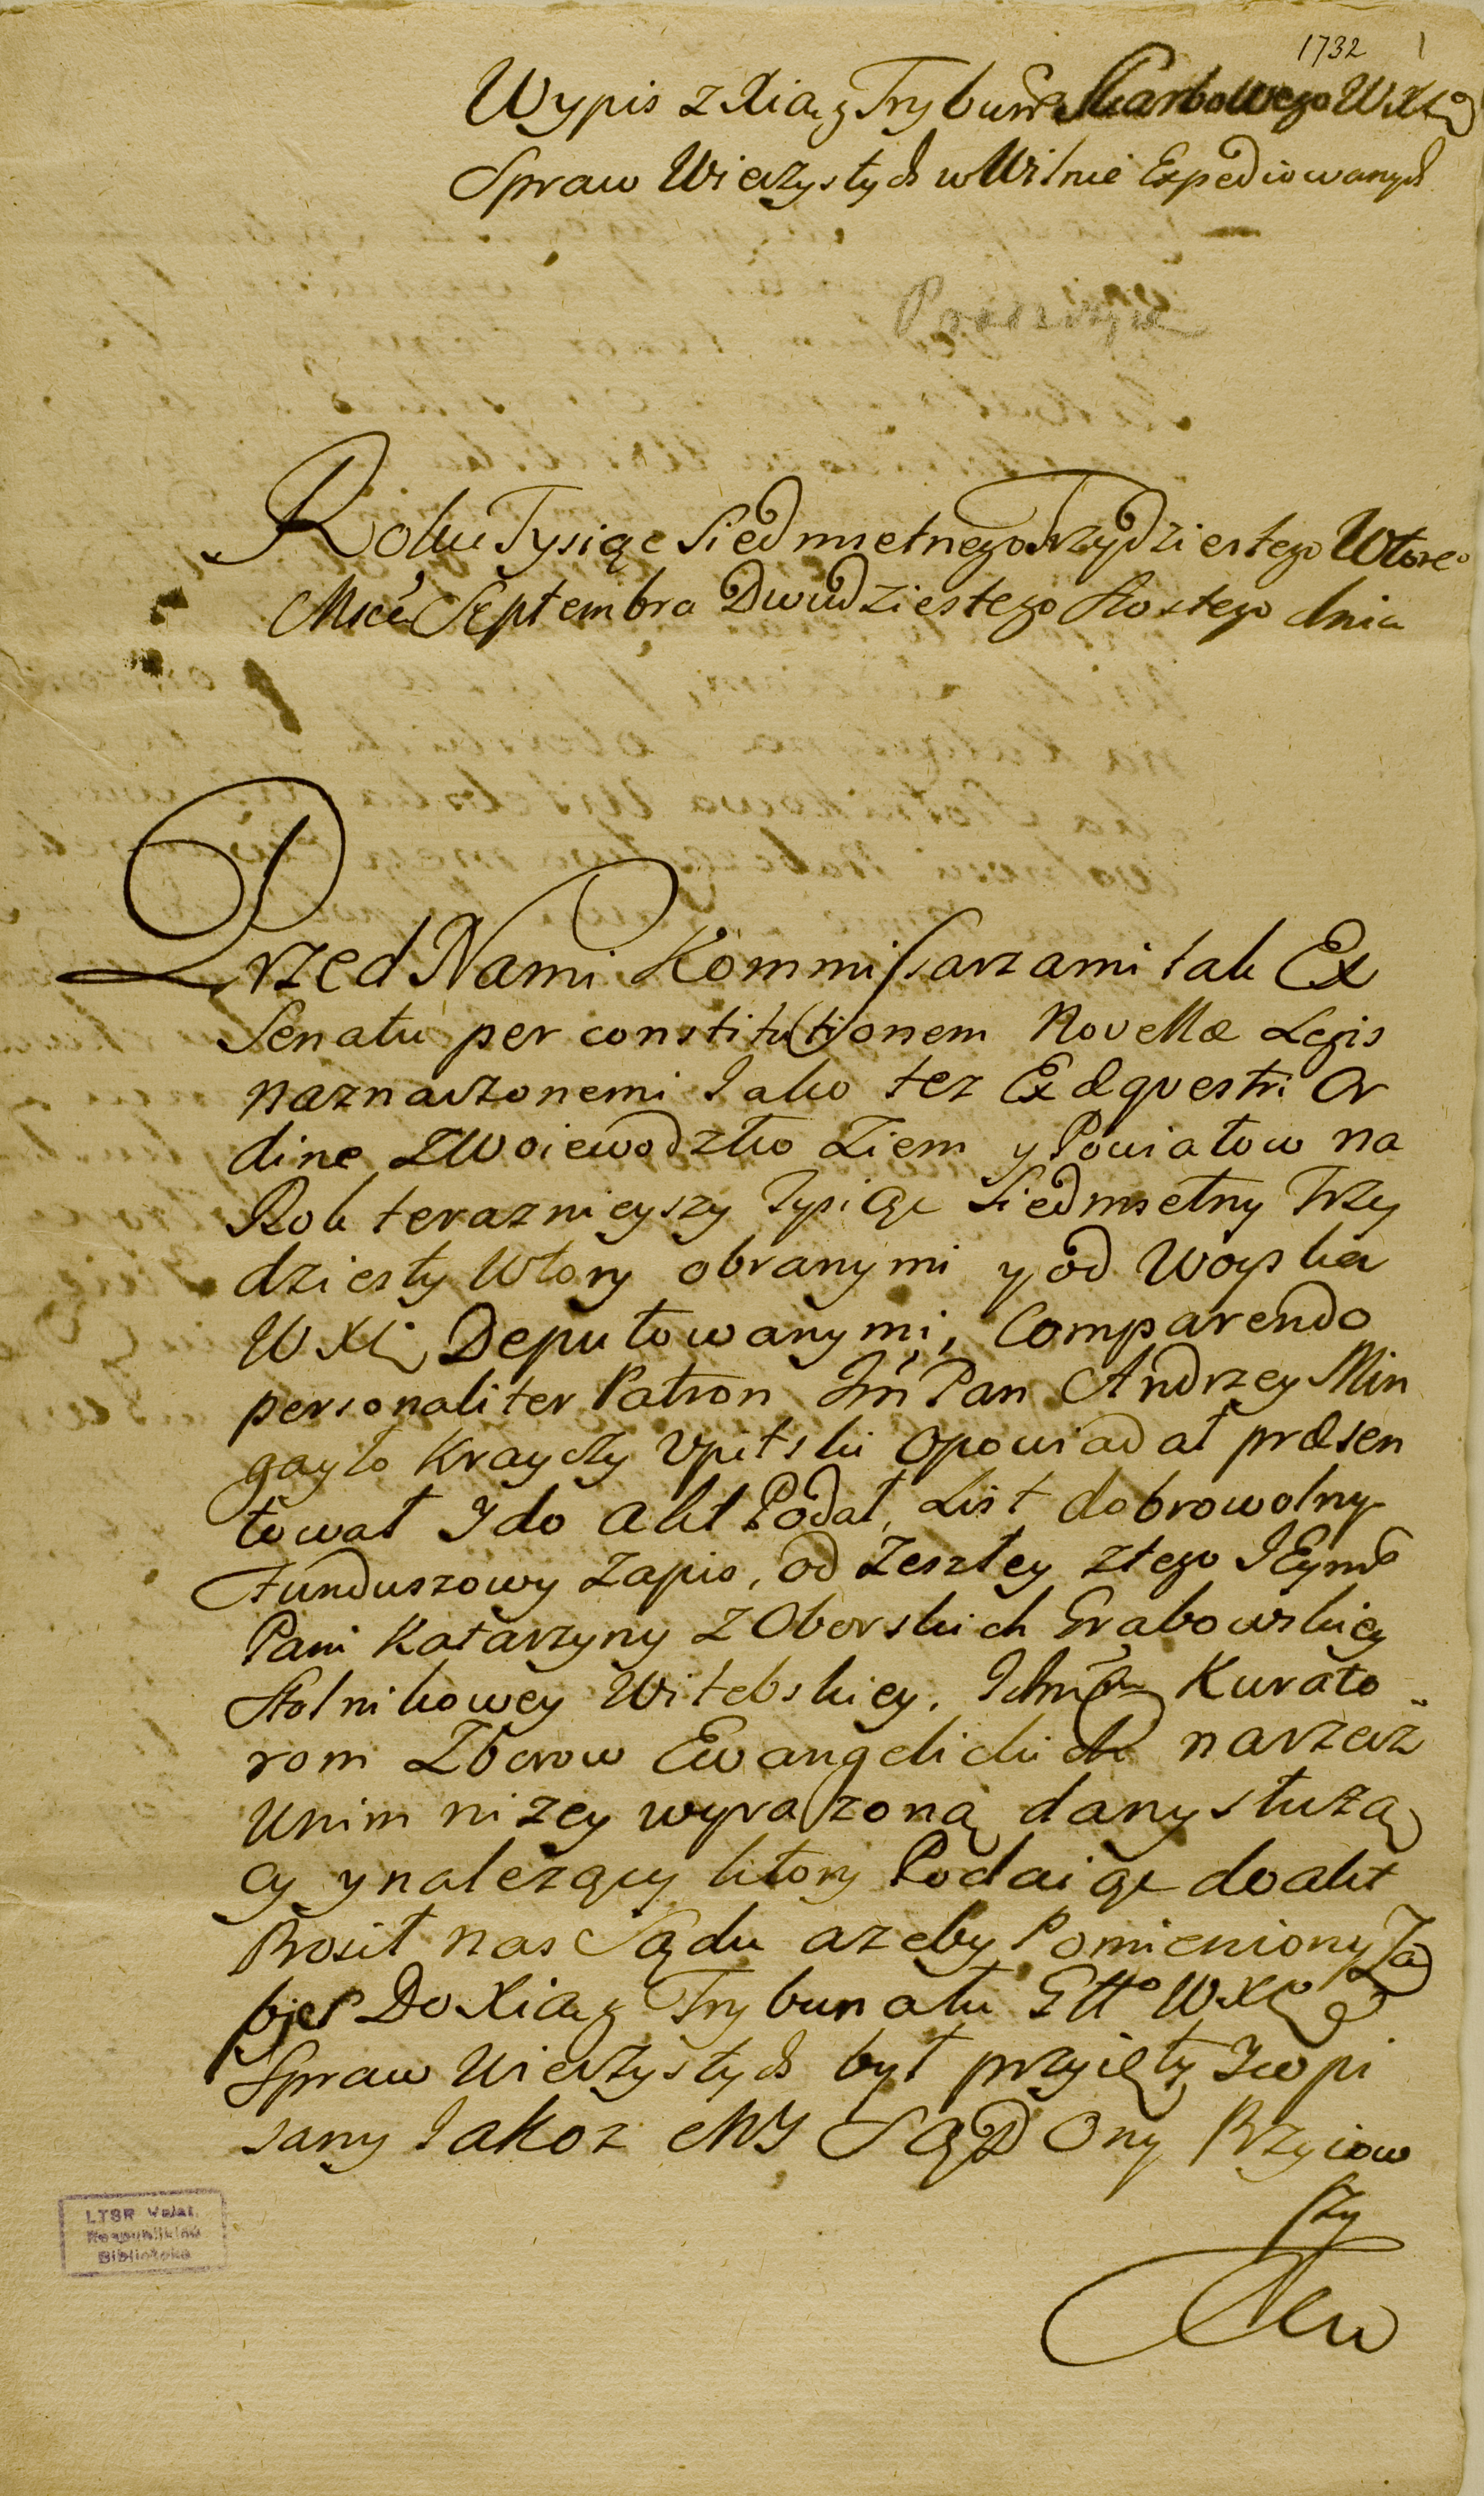 1732 1
Wypis z Xiąg Trybunału Skarbowego W X L
Spraw Wieczystych w Wilnie Expediowanych
Roku Tysiąc Siedmsetnego Trzydziestego Wtorego
Msca Septembra Dwudziestego Szostego dnia
Przed Nami Kommissarzami tak Ex
Senatu per constitutionem Novellæ Legis
naznaczonemi Jako tez Ex Equestri Or
dine z Woiewodztw Ziem y Powiatow na
Rok teraznieyszy Tysiąc Siedmsetny Trzy
dziesty Wtory obranymi y od Woyska
W X L Deputowanymi, Comparendo
personaliter Patron Jm Pan Andrzey Min
gayło Krayczy Upitski opowiadał præsen
tował J do Akt Podał, List dobrowolny
Funduszowy Zapis, od Zeszłey z tego JEymć
Pani Katarzyny z Oborskich Grabowskiey
Stolnikowey Witebskiey, Ichm Kurato
rom Zborow Ewangelickich na rzecz
w nim nizey wyrazoną dany słuzą
cy y nalezący ktory Podaiąc do akt
Prosił nas Sądu azeby Pomieniony Za
pis Do Xiąg Trybunału Gło W X L
Spraw Wieczystych był przyięty J wpi
sany Jakoz MY SĄD Ony Przyiow
szy
LTSR Valst.
Respublikinė
Biblioteka